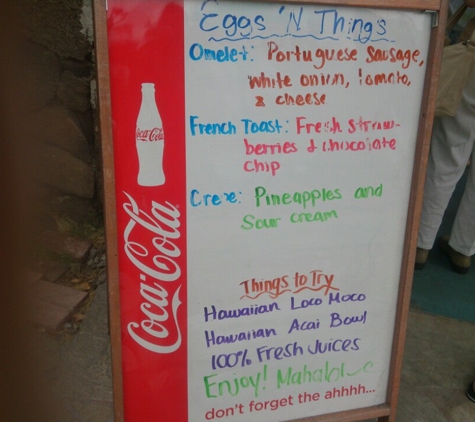 Eggs 'N Things
Omelet: Portuguese Sausage,
white onion, tomato,
& cheese
French Toast: Fresh straw-
berries & chocolate
chip
Crepe: Pineapples and
Sour cream
Things to Try
Hawaiian Loco Moco
Hawaiian Acai Bowl
100% Fresh Juices
Enjoy! Mahalo
don't forget the ahhhh...
Coca-Cola
Coca-Cola